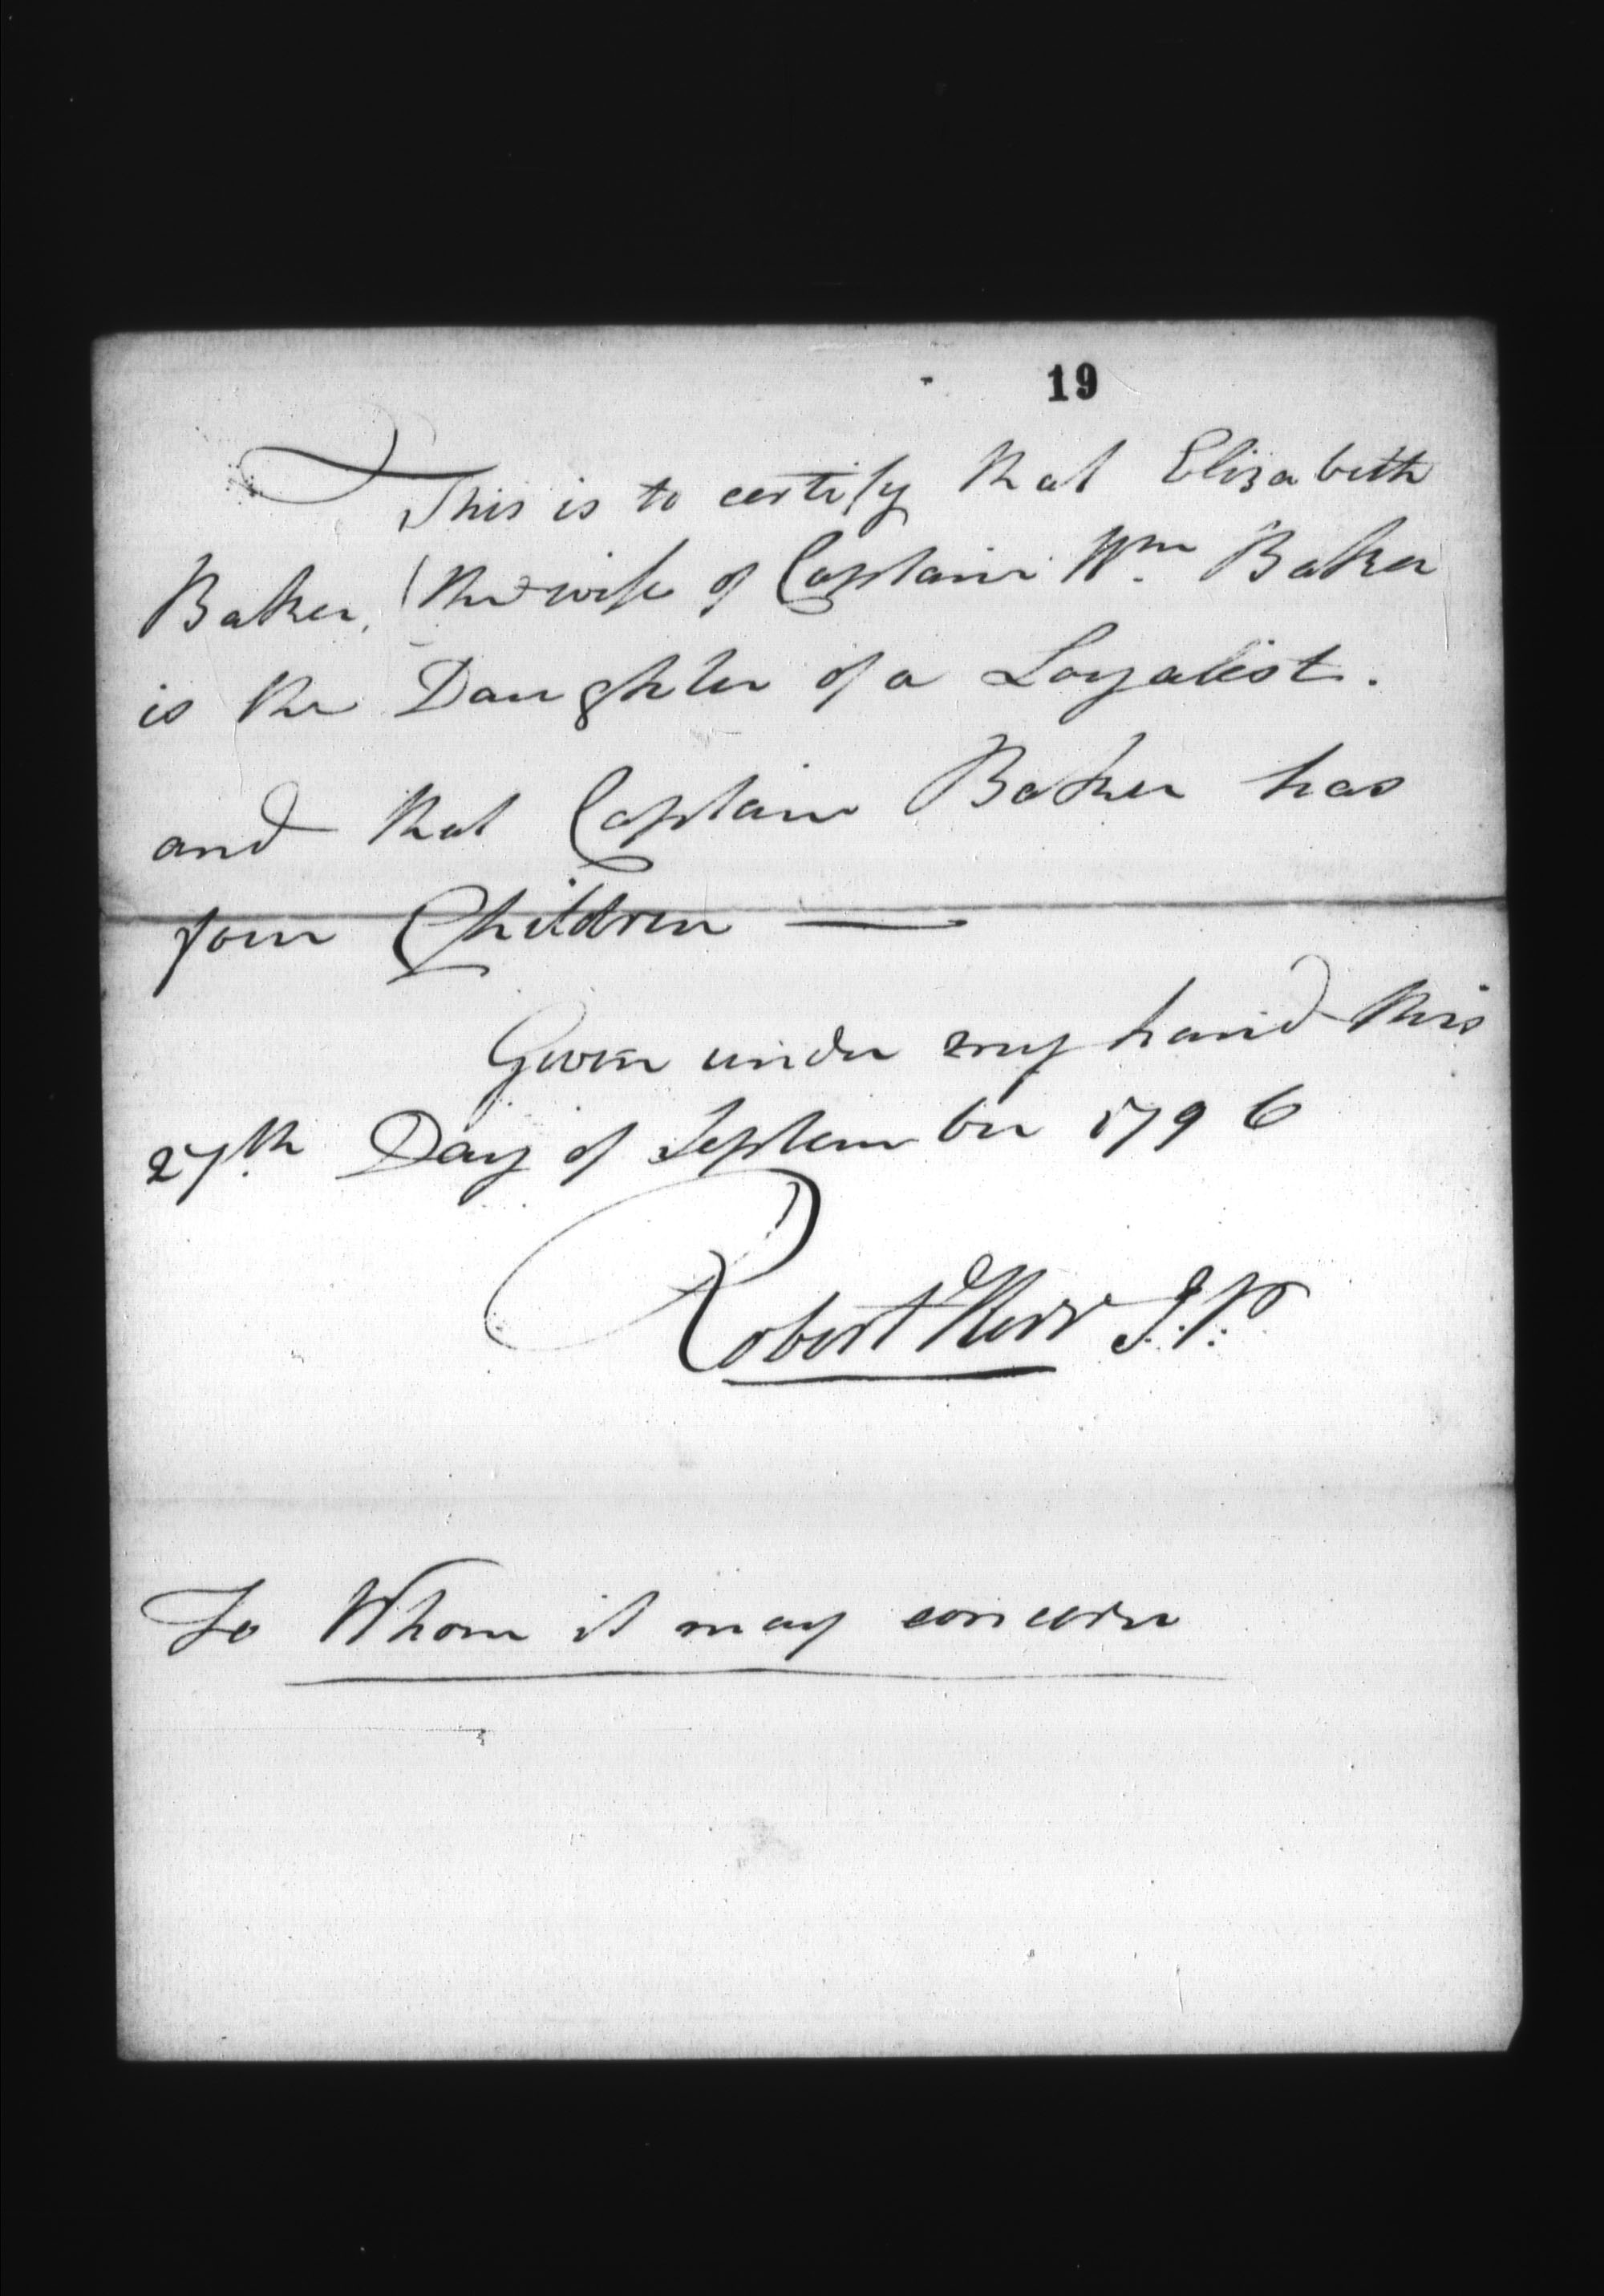 19
This is to certify that Elizabeth
Baker, the wife of Captain Wm. Baker
is the Daughter of a Loyalist.
and that Captain Baker has
four Children —
Given under my hand this
27th. Day of September 1796
Robert Kerr J.P.
To Whom it may concern